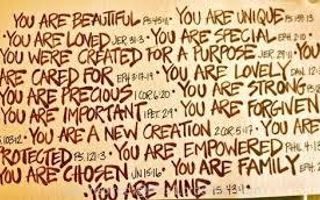 YOU ARE BEAUTIFUL PS 45:11 • YOU ARE UNIQUE PS 139:13
• YOU ARE LOVED JER 31:3 • YOU ARE SPECIAL EPH 2:10 •
YOU WERE CREATED FOR A PURPOSE JER 29:11 • YOU
ARE CARED FOR EPH 3:17-19 • YOU ARE LOVELY DAN. 12:3
YOU ARE PRECIOUS 1 COR 6:20 • YOU ARE STRONG PS
YOU ARE IMPORTANT 1 PET. 2:9 • YOU ARE FORGIVEN
S. 103:12 • YOU ARE A NEW CREATION 2 COR 5:17 • YOU ARE
PROTECTED PS. 121:3 • YOU ARE EMPOWERED PHIL 4:13
YOU ARE CHOSEN JN 15:16 • YOU ARE FAMILY EPH. 2
• YOU ARE MINE IS 43:4 •